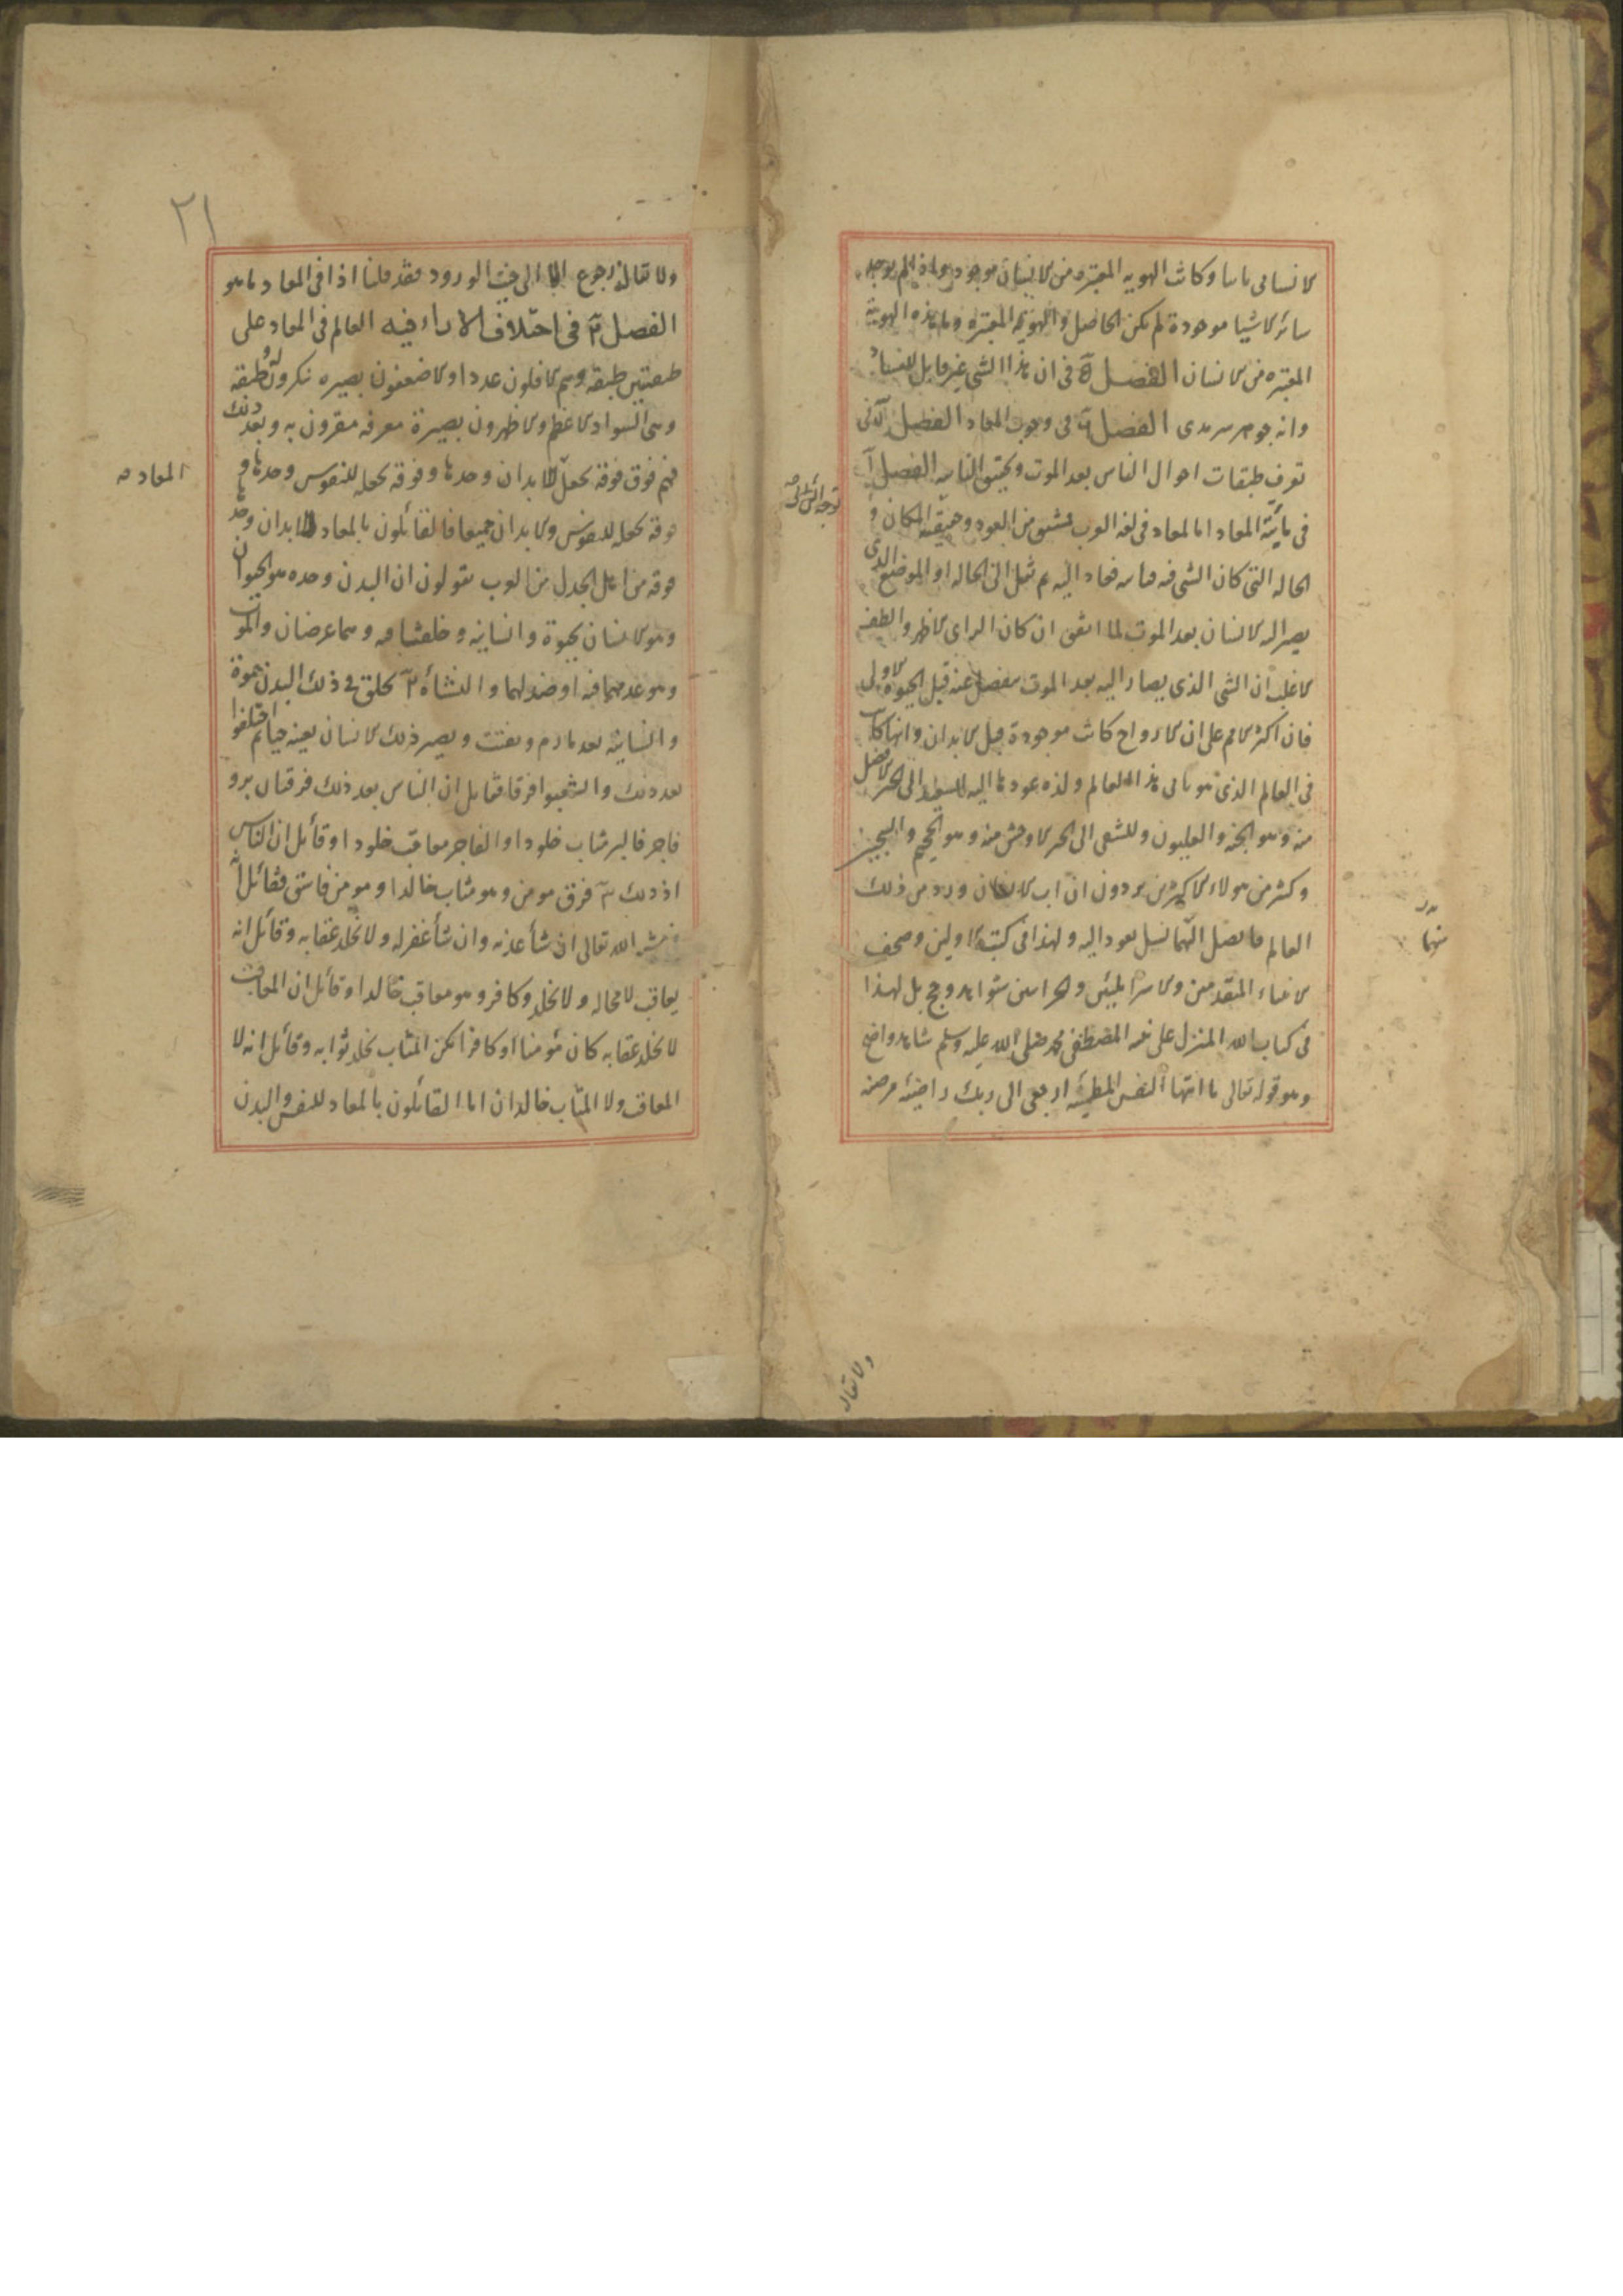 الانسانى ماسا وكانت الهويه المعتبره من الانسان موجودة واذا لم يوجد
سائر الاشيا موجودة لم يكن الحاصل الهوية المعتبره وما هذه الهوية
المعتبره من الانسان الفصل ٥ فى ان هذا الشى غير قابل للفساد
وانه جوهر سرمدى الفصل ٦ فى وجوب المعاد الفصل ٧ فى
تعرف طبقات احوال الناس بعد الموت وتحقيق النشاه الفصل ١
فى مائية المعاد اما المعاد فى لغه العرب مشتق من العود وحقيقته المكان او
الحاله التى كان الشى فيه فباينه فعاد اليه ثم نقل الى الحاله او الموضع الذى
يصير اليه الانسان بعد الموت لما اتفق ان كان الراى الاظهر والظن
الاغلب ان الشى الذى يصار اليه بعد الموت منفصل عنه قبل الحيوة الاولى
فان اكثر الامم على ان الارواح كانت موجودة قبل الابدان وانها كانت
فى العالم الذى هو ثانى هذا العالم ولذه عودها اليه للسعيد الى الحيز الافضل
منه وهو الجنه والعليون وللشقى الى الحيز الاوحش منه وهو الجحيم والسجين
وكثير من هولاء الاكثرين يردون ان اب الانسان ورد من ذلك
العالم فاتصل النسل يعود اليه ولهذا فى كتب الاولين وصحف
الانبياء المتقدمين والاسرائيليين والحرانيين شواهد وحجج بل لهذا
فى كتاب الله المنزل على نبيه المصطفى محمد صلى الله عليه وسلم شاهد واضح
وهو قوله تعالى يا ايتها النفس المطمئنه ارجعى الى ربك راضيه مرضيه
ولا يقال
٢١
ولا يقال الرجوع الا الى حيث الورود فقد قلنا اذا فى المعاد ما هو
الفصل ٢ فى اختلاف الاراء فيه العالم فى المعاد على
طبقتين طبقه وهم الاقلون عددا والاضعفون بصيره منكرون له وطبقه
وهى السواد الاعظم والاظهرون بصيرة معرفه مقرون به وبعد ذلك
فهم فرق فرقه تجعل للابدان وحدها وفرقه تجعله للنفوس وحدها و
فرقه تجعله للنفوس والابدان جميعا فالقائلون بالمعاد للابدان وحدها
فرقه من اهل الجدل من العرب يقولون ان البدن وحده هو الحيوان
وهو الانسان بحيوة وانسانيه وخلقتا فيه وهما عرضان والموت
وهو عدمهما فيه او ضد لهما والنشأة ٢ يخلق فى ذلك البدن حيوة
وانسانيه بعد ما رم وتفتت ويصير ذلك الانسان بعينه حيا ثم اختلفوا
بعد ذلك وانشعبوا فرقا فقائل ان الناس بعد ذلك فرقتان بر و
فاجر فالبر مثاب خلودا والفاجر معاقب خلودا وقائل ان الناس
اذ ذلك ٣ فرق مومن وهو مثاب خالدا ومومن فاسق فقائل انه
فى مشيه الله تعالى ان شأ عذبه وان شأ غفر له ولا يخلد عقابه وقائل انه
يعاقب لا محاله ولا يخلد وكافر وهو معاقب خالدا وقائل ان المعاقب
لا يخلد عقابه كان مؤمنا او كافرا لكن المثاب يخلد ثوابه وقائل انه لا
المعاقب ولا المثاب خالدان اما القائلون بالمعاد للنفس والبدن
المعاد صه